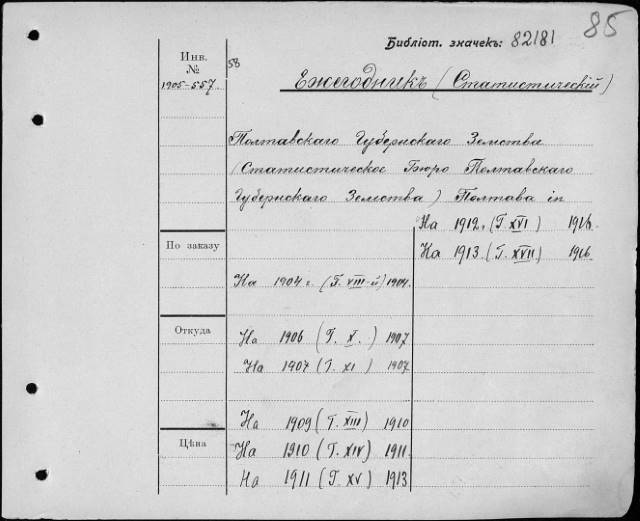 85
Библіот. значекъ: 82181
Инв. №
58
1905-557.
Ежегодникъ (Статистическій)
Полтавскаго Губернскаго Земства
(Статистическое Бюро Полтавскаго
Губернскаго Земства) Полтава in
На 1912 г. (Г. XVI) 1916.
По заказу
На 1913 (Г. XVII) 1916.
На 1904 г. (Г. VIII-й) 1904.
Откуда
На 1906 (Г. X.) 1907
На 1907 (Г. XI) 1907.
На 1909 (Г. XIII) 1910
Цѣна
На 1910 (Г. XIV) 1911.
На 1911 (Г. XV) 1913